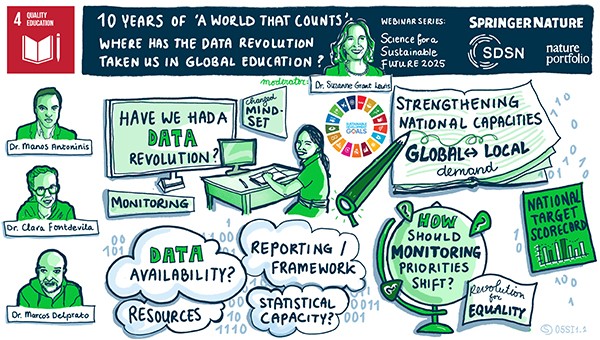 4 QUALITY
EDUCATION
10 YEARS OF 'A WORLD THAT COUNTS':
WHERE HAS THE DATA REVOLUTION
TAKEN US IN GLOBAL EDUCATION?
moderator:
Dr. Suzanne Grant Lewis
WEBINAR SERIES:
Science for a
Sustainable
Future 2025
SPRINGER NATURE
SDSN
nature
portfolio
Dr. Manos Antoninis
Dr. Clara Fontdevila
Dr. Marcos Delprato
HAVE WE HAD A
DATA
REVOLUTION?
Changed
MIND-
SET
MONITORING
SUSTAINABLE
DEVELOPMENT
GOALS
STRENGTHENING
NATIONAL CAPACITIES
GLOBAL ↔ LOCAL
demand
DATA
AVAILABILITY?
RESOURCES
REPORTING /
FRAMEWORK
STATISTICAL
CAPACITY?
HOW
SHOULD
MONITORING
PRIORITIES
SHIFT?
?
?
NATIONAL
TARGET
SCORECARD
Revolution
for
EQUALITY